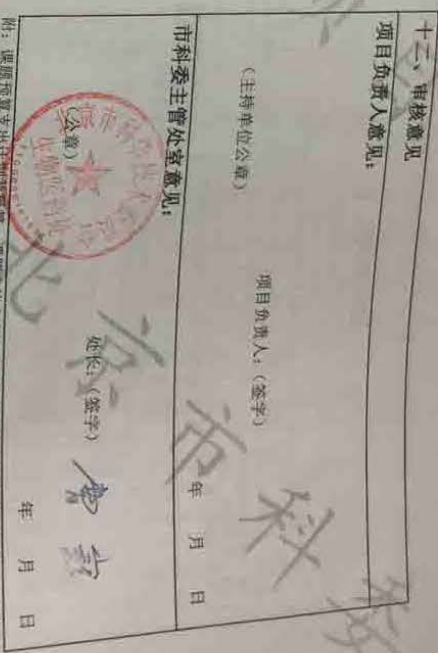 十二、审核意见
项目负责人意见:
(主持单位公章)
项目负责人:(签字)
年 月 日
市科委主管处室意见:
(公章)
处长:(签字)
年 月 日
北京市科委